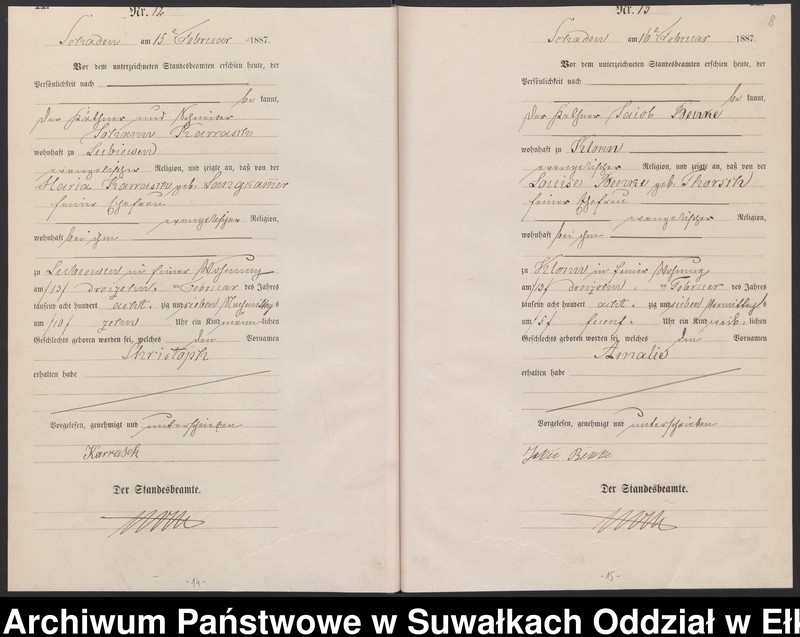 Nr. 12
Schaden am 15ᵉ Februar 1887.
Vor dem unterzeichneten Standesbeamten erschien heute, der
Persönlichkeit nach
be kannt,
der Käthner und Schneider
Johann Karrasch
wohnhaft zu Lisbiewen
evangelischer Religion, und zeigte an, daß von der
Maria Karrasch geb. Langkamer
seiner Ehefrau
evangelischer Religion,
wohnhaft bei ihm
zu in seiner Wohnung
am /13/ dreizehn ten Februar des Jahres
tausend acht hundert acht. zig und sieben Nachmittags
um /10/ zehn Uhr ein Kind männ- lichen
Geschlechts geboren worden sei, welches den Vornamen
Christoph
erhalten habe
Vorgelesen, genehmigt und unterschrieben
Karrasch
Der Standesbeamte.
-14-
Nr. 13
8
Schaden am 16ᵉ Februar 1887.
Vor dem unterzeichneten Standesbeamten erschien heute, der
Persönlichkeit nach
be kannt,
der Käthner Jacob
wohnhaft zu Klonn
evangelischer Religion, und zeigte an, daß von der
Louise geb. Thorsich
seiner Ehefrau
evangelischer Religion,
wohnhaft bei ihm
zu Klonn in seiner Wohnung
am /13/ dreizehn. ten Februar des Jahres
tausend acht hundert acht. zig und sieben Vormittags
um /5/ fuenf. Uhr ein Kind weib- lichen
Geschlechts geboren worden sei, welches den Vornamen
Amalie
erhalten habe
Vorgelesen, genehmigt und unterschrieben
Der Standesbeamte.
-15-
Archiwum Państwowe w Suwałkach Oddział w Eł